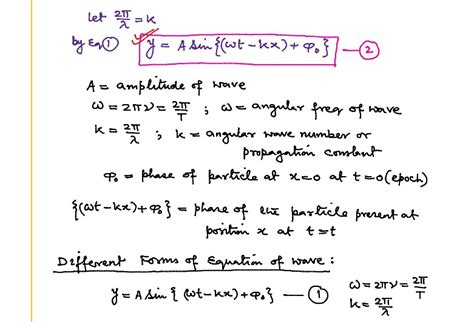 let 2π/λ = k
by Eq ① y = A sin{(ωt – kx) + φ₀} — ②
A = amplitude of wave
ω = 2πν = 2π/T ; ω = angular freq of wave
k = 2π/λ ; k = angular wave number or
propagation constant
φ₀ = phase of particle at x=0 at t=0 (epoch)
{(ωt – kx) + φ₀} = phase of the particle present at
position x at t=t
Different Forms of Equation of wave :
y = A sin { (ωt – kx) + φ₀} — ① ω = 2πν = 2π/T
k = 2π/λ